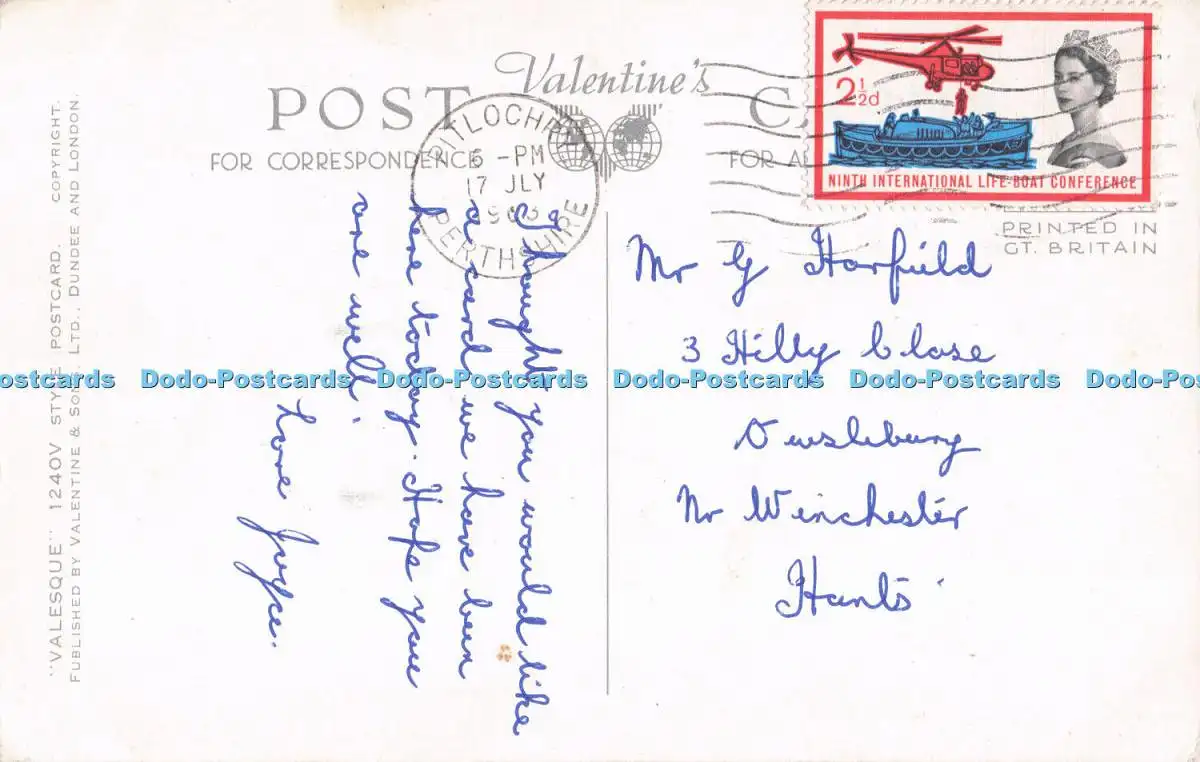 Valentine's
POST CA
FOR CORRESPONDENCE
FOR A
PITLOCHRY
5 - PM
17 JLY
1963
PERTHSHIRE
2½d
NINTH INTERNATIONAL LIFE-BOAT CONFERENCE
PRINTED IN
GT. BRITAIN
"VALESQUE" 1240V STYLE POSTCARD. COPYRIGHT.
PUBLISHED BY VALENTINE & SONS, LTD., DUNDEE AND LONDON.
I thought you would like
a card we have been
here today. Hope you
are well.
Love Joyce.
Mr G Harfield
3 Hilly Close
Owslebury
Nr Winchester
Hants
ostcards Dodo-Postcards Dodo-Postcards Dodo-Postcards Dodo-Postcards Dodo-Post